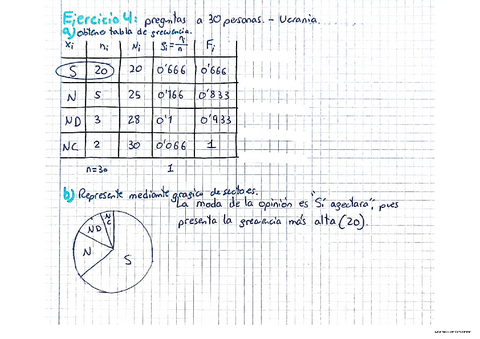 Ejercicio 4: preguntas a 30 pesonas. - Ucrania.
a) obteno tabla de frecuencia.
xi ni Ni fi=ni/n Fi
S 20 20 0'666 0'666
N 5 25 0'166 0'833
ND 3 28 0'1 0'933
NC 2 30 0'066 1
n=30 1
b) Represente mediante grafico de sectores.
La moda de la opinión es "Sí afectara", pues
presenta la frecuencia más alta (20).
NC
ND
N
S